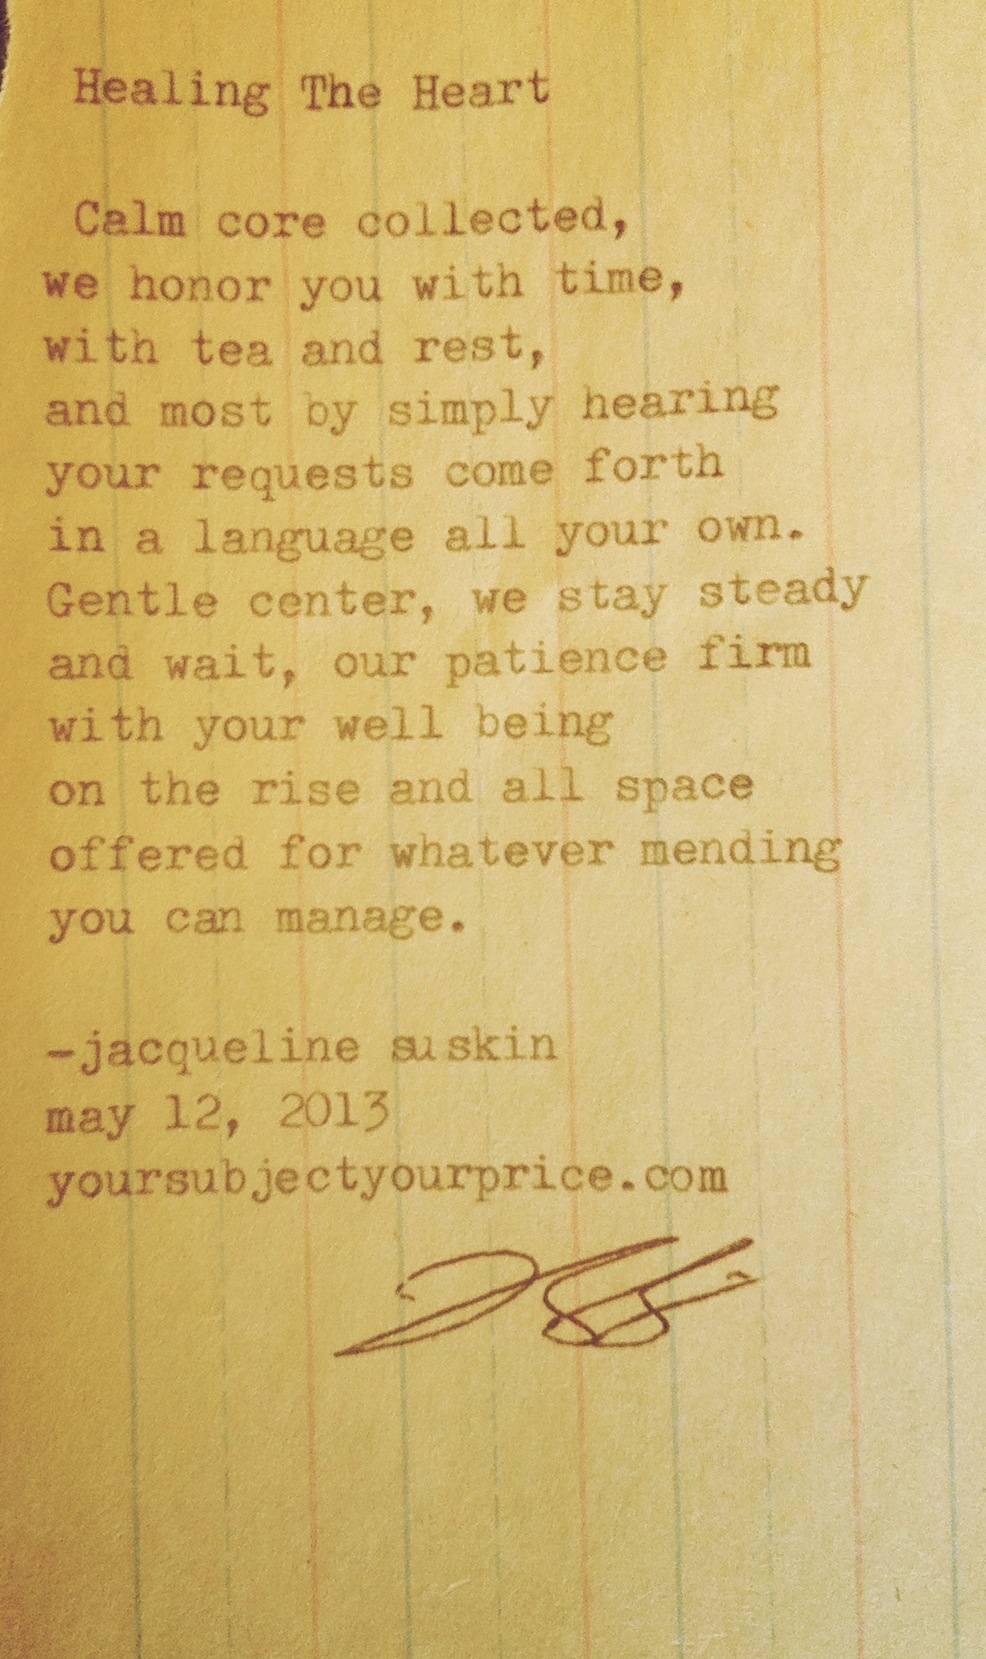 Healing The Heart
Calm core collected,
we honor you with time,
with tea and rest,
and most by simply hearing
your requests come forth
in a language all your own.
Gentle center, we stay steady
and wait, our patience firm
with your well being
on the rise and all space
offered for whatever mending
you can manage.
-jacqueline suskin
may 12, 2013
yoursubjectyourprice.com